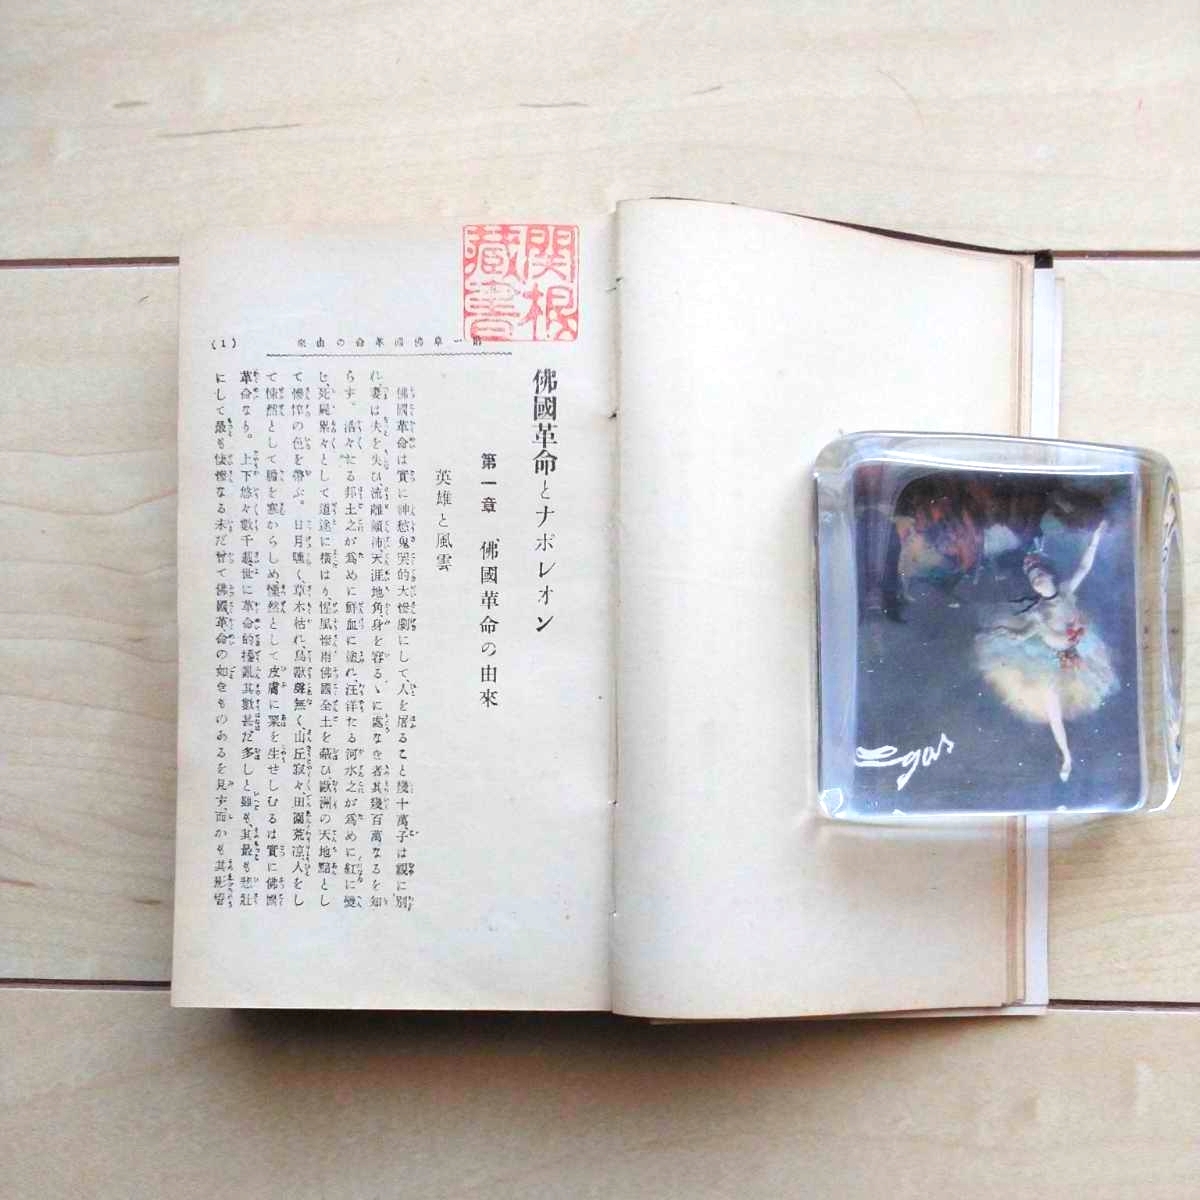 関根
藏書
第一章佛國革命の由來
(1)
佛國革命とナポレオン
第一章 佛國革命の由來
英雄と風雲
佛國革命は實に神愁鬼哭的大慘劇にして、人を屠ること幾十萬子は親に別
れ、妻は夫を失ひ流離顚沛、天涯地角身を容るゝに處なき者其幾百萬なるを知
らず。滔々たる邦土之が爲めに鮮血に塗れ、汪洋たる河水之が爲めに紅に變
じ、死屍累々として道途に橫はり、慘雨佛國全土を蔽ひ、歐洲の天地黯とし
て慘憺の色を帶ぶ。日月曛く、草木枯れ、鳥獸聲無く、山丘寂々、田園荒凉人をし
て悚然として膽を寒からしめ、慄然として皮膚に粟を生せしむるは實に佛國
革命なり。上下悠々數千載、世に革命的擾亂其數甚だ多しと雖も、其最も悲壯
にして最も悽慘なる未だ曾て佛國革命の如きものあるを見ず、而かも其影響
Degas